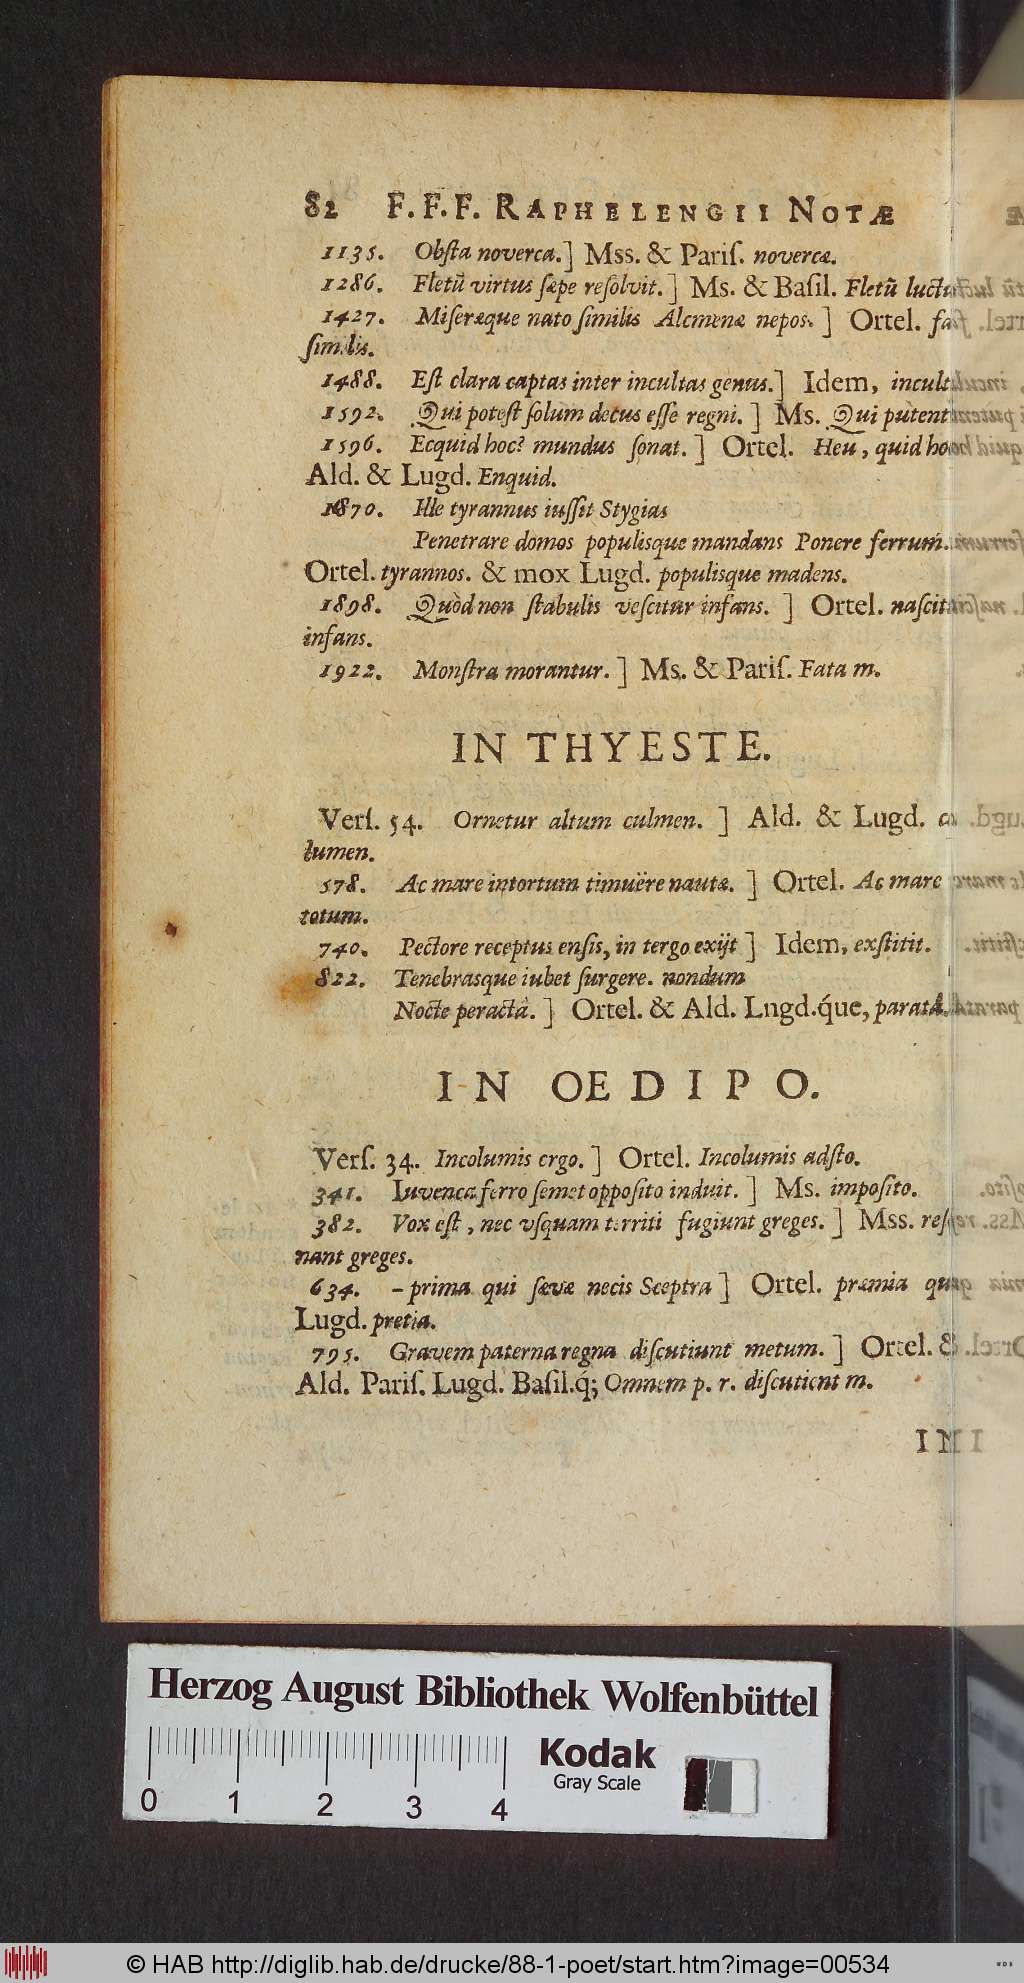 82 F. F. F. RAPHELENGII NOTÆ
1135. Obſta noverca.] Mss. & Pariſ. novercæ.
1286. Fletũ virtus ſæpe reſolvit.] Ms. & Baſil. Fletũ
1427. Miſeræque nato ſimilis Alcmenæ nepos.] Ortel.
ſimilis.
1488. Eſt clara captas inter incultas genus.] Idem,
1592. Qui poteſt ſolum decus eſſe regni.] Ms. Qui putent
1596. Ecquid hoc? mundus ſonat.] Ortel. Heu, quid
Ald. & Lugd. Enquid.
1870. Ille tyrannus iuſſit Stygias
Penetrare domos populisque mandans Ponere ferrum.
Ortel. tyrannos. & mox Lugd. populisque madens.
1898. Quòd non ſtabulis veſcitur infans.] Ortel.
infans.
1922. Monſtra morantur.] Ms. & Pariſ. Fata m.
IN THYESTE.
Verſ. 54. Ornetur altum culmen.] Ald. & Lugd.
lumen.
578. Ac mare intortum timuëre nautæ.] Ortel. Ac mare
totum.
740. Pectore receptus enſis, in tergo exijt] Idem, exſtitit.
822. Tenebrasque iubet ſurgere. nondum
Nocte peractâ.] Ortel. & Ald. Lngd.q́ue, paratâ.
IN OEDIPO.
Verſ. 34. Incolumis ergo.] Ortel. Incolumis adſto.
341. Iuvenca ferro ſemet oppoſito induit.] Ms. impoſito.
382. Vox eſt, nec vſquam territi fugiunt greges.] Mss.
nant greges.
634. – prima qui ſævæ necis Sceptra] Ortel. præmia
Lugd. pretia.
795. Gravem paterna regna diſcutiunt metum.] Ortel. &
Ald. Pariſ. Lugd. Baſil.q́; Omnem p. r. diſcutient m.
Herzog August Bibliothek Wolfenbüttel
Kodak
Gray Scale
0 1 2 3 4
© HAB http://diglib.hab.de/drucke/88-1-poet/start.htm?image=00534